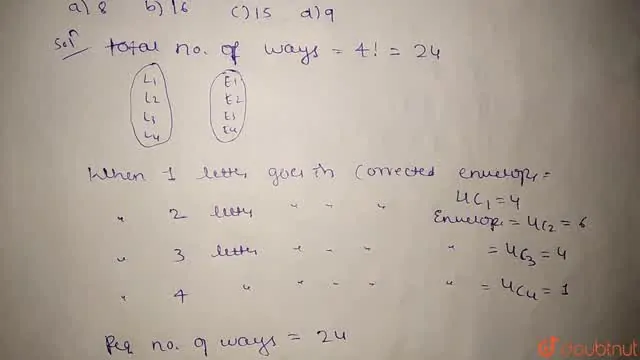 a) 8 b) 16 c) 15 d) 9
Solⁿ total no. of ways = 4! = 24
L1 E1
L2 E2
L3 E3
L4 E4
When 1 letter goes in corrected envelop =
4C1 = 4
" 2 letter " " " Envelop = 4C2 = 6
" 3 letter " " " " = 4C3 = 4
" 4 " " " " " = 4C4 = 1
Req no. of ways = 24
doubtnut